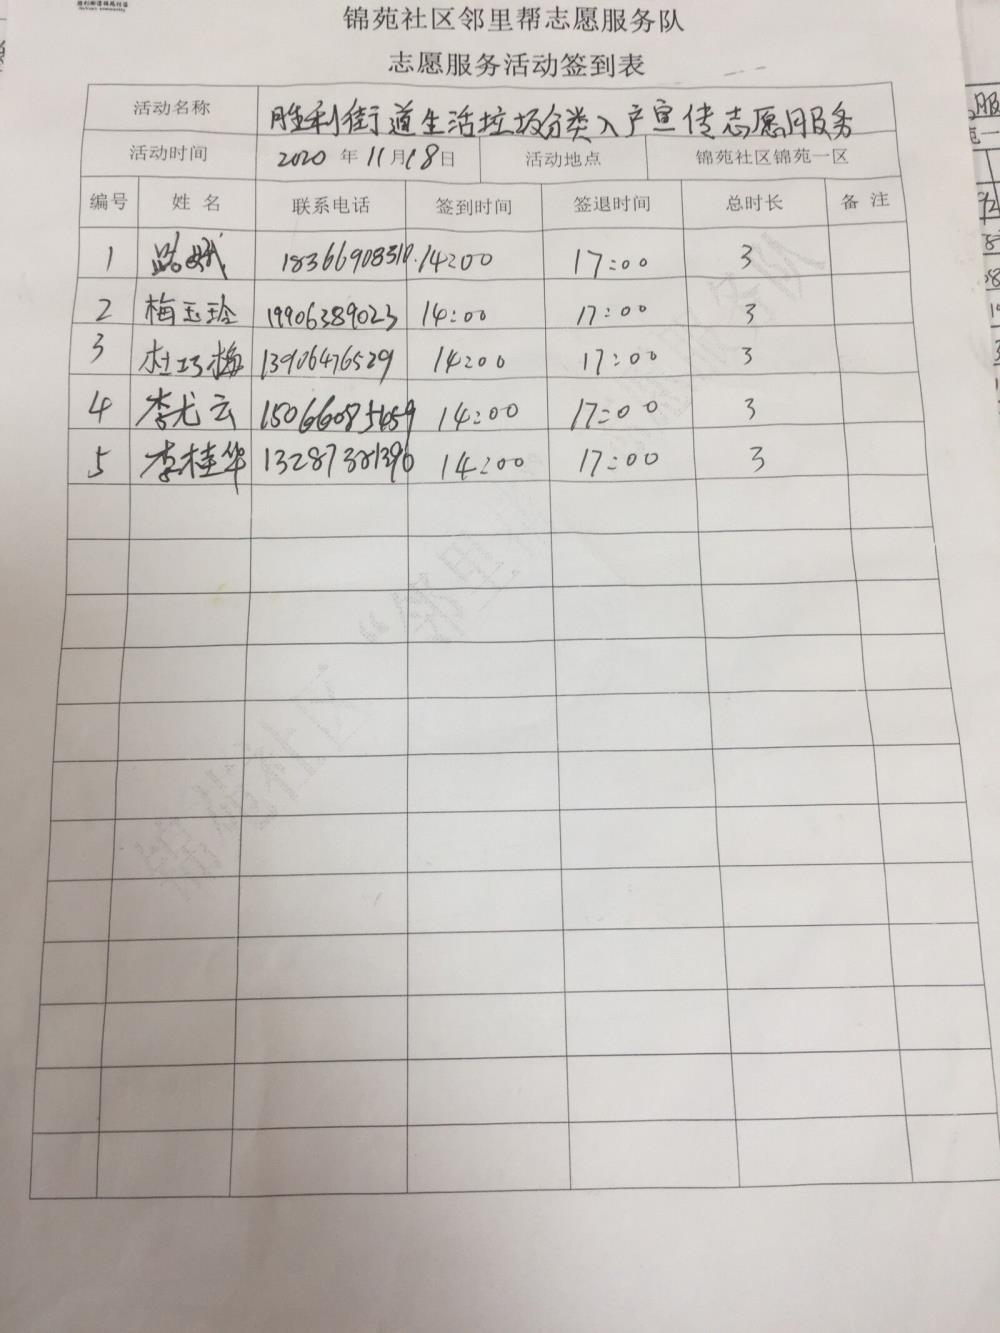 锦苑社区邻里帮志愿服务队
志愿服务活动签到表
活动名称 胜利街道生活垃圾分类入户宣传志愿服务
活动时间 2020年11月18日 活动地点 锦苑社区锦苑一区
编号 姓名 联系电话 签到时间 签退时间 总时长 备注
1 14:00 17:00 3
2 梅玉玲 19906389023 14:00 17:00 3
3 杜巧梅 13906476529 14:00 17:00 3
4 李尤云 14:00 17:00 3
5 李桂华 14:00 17:00 3
锦苑社区“邻里帮”志愿服务队